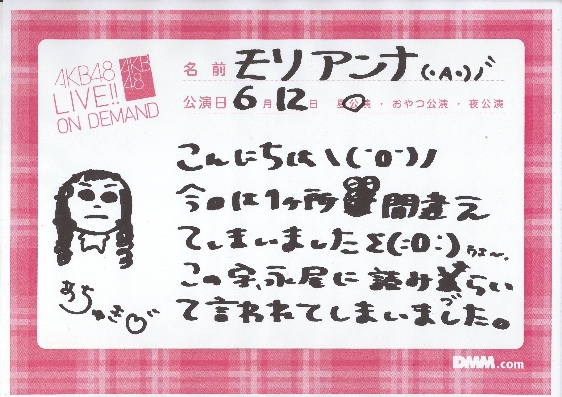 AKB48
LIVE!!
ON DEMAND
AKB
48
名前 モリアンナ(・A・)ﾉﾞ
公演日 6月12日 昼公演・おやつ公演・夜公演
こんにちは\(-0-)/
今日は1ヶ所間違え
てしまいましたΣ(:0:)
この字、永尾に読みづらい
て言われてしまいました。
あちゅき
DMM.com